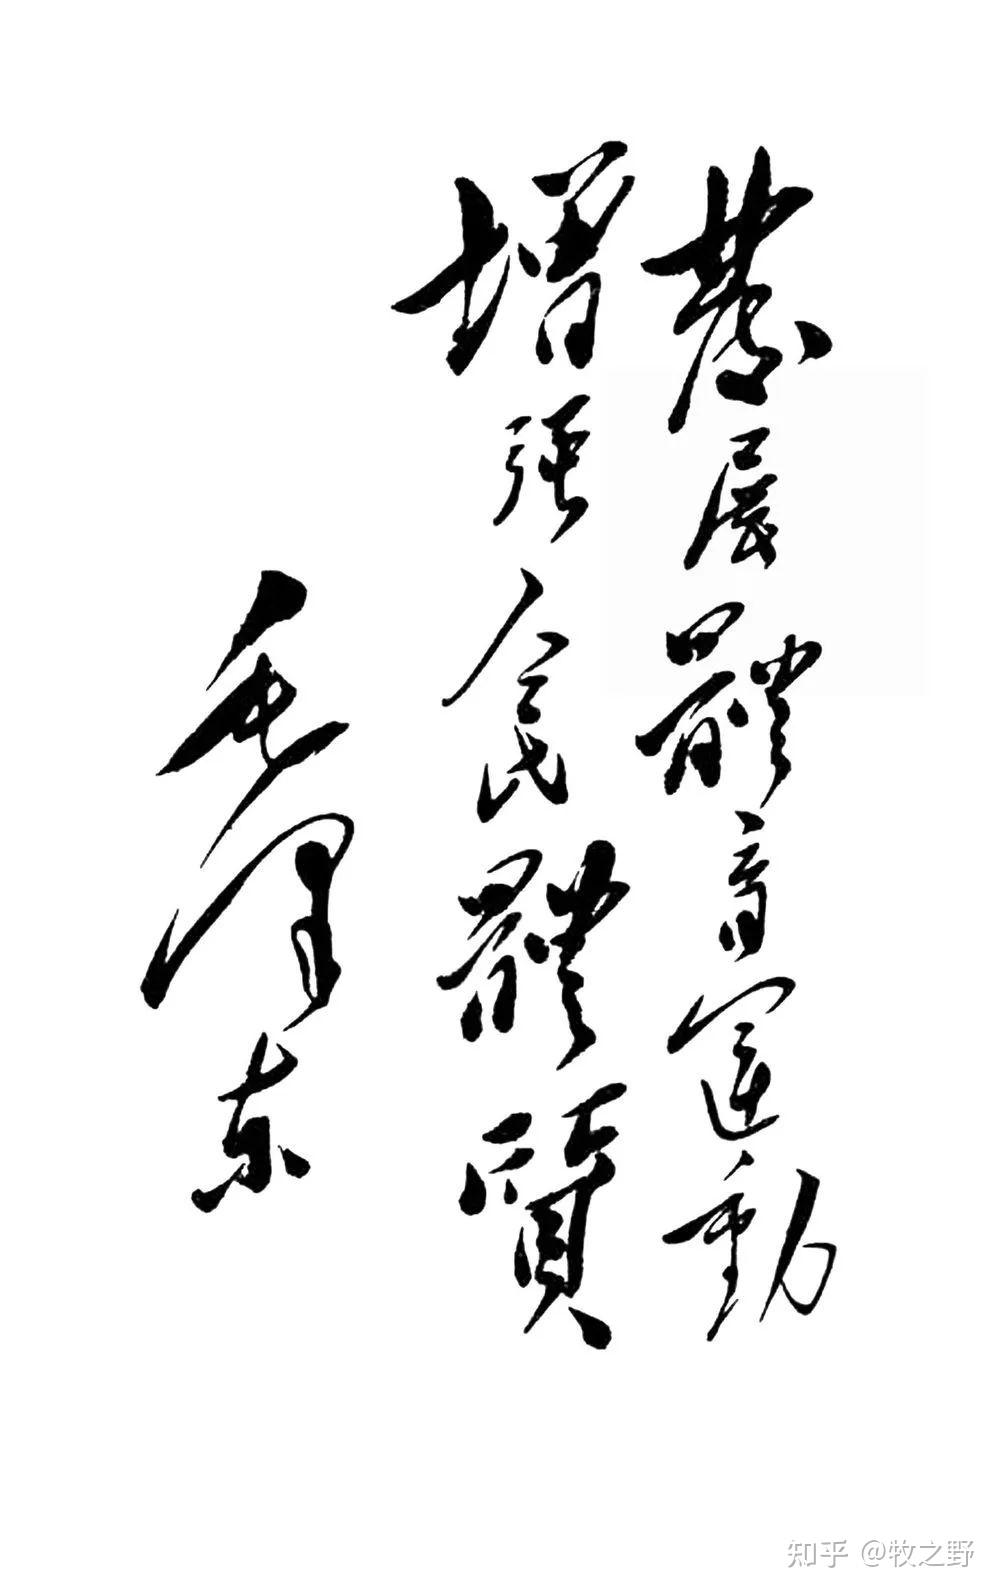 發展體育運動
增强人民體質
毛澤东
知乎 @牧之野